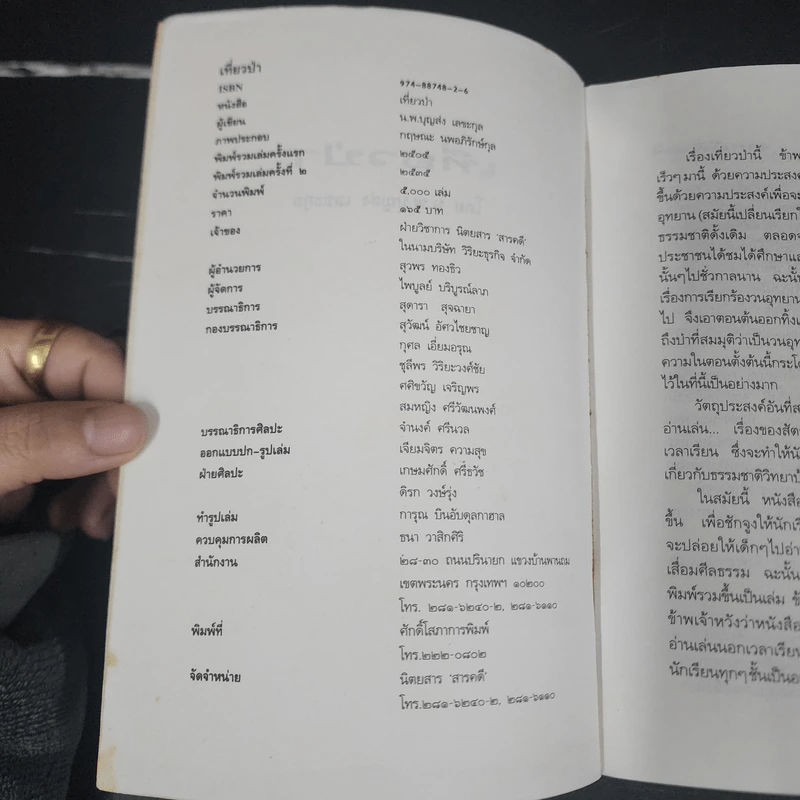 เที่ยวป่า
ISBN 974-88748-2-6
หนังสือ เที่ยวป่า
ผู้เขียน น.พ.บุญส่ง เลขะกุล
ภาพประกอบ กฤษณะ นพอภิรักษ์กุล
พิมพ์รวมเล่มครั้งแรก ๒๕๐๕
พิมพ์รวมเล่มครั้งที่ ๒ ๒๕๓๕
จำนวนพิมพ์ ๕,๐๐๐ เล่ม
ราคา ๑๖๕ บาท
เจ้าของ ฝ่ายวิชาการ นิตยสาร 'สารคดี'
ในนามบริษัท วิริยะธุรกิจ จำกัด
ผู้อำนวยการ สุวพร ทองธิว
ผู้จัดการ ไพบูลย์ บริบูรณ์ลาภ
บรรณาธิการ สุดารา สุจฉายา
กองบรรณาธิการ สุวัฒน์ อัศวไชยชาญ
กุศล เอี่ยมอรุณ
ชุลีพร วิริยะวงศ์ชัย
ศศิขวัญ เจริญพร
สมหญิง ศรีวัฒนพงศ์
บรรณาธิการศิลปะ จำนงค์ ศรีนวล
ออกแบบปก-รูปเล่ม เจียมจิตร ความสุข
ฝ่ายศิลปะ เกษมศักดิ์ ศรีธวัช
ดิรก วงษ์รุ่ง
ทำรูปเล่ม การุณ บินอับดุลกาฮาล
ควบคุมการผลิต ธนา วาสิกศิริ
สำนักงาน ๒๘-๓๐ ถนนปรินายก แขวงบ้านพานถม
เขตพระนคร กรุงเทพฯ ๑๐๒๐๐
โทร. ๒๘๑-๖๒๔๐-๒, ๒๘๑-๖๑๑๐
พิมพ์ที่ ศักดิ์โสภาการพิมพ์
โทร.๒๒๒-๐๘๐๒
จัดจำหน่าย นิตยสาร 'สารคดี'
โทร.๒๘๑-๖๒๔๐-๒, ๒๘๑-๖๑๑๐
เรื่องเที่ยวป่านี้ ข้าพ
เร็วๆ มานี้ ด้วยความประสงค์
ขึ้นด้วยความประสงค์เพื่อจะ
อุทยาน (สมัยนี้เปลี่ยนเรียกใ
ธรรมชาติดั้งเดิม ตลอดจ
ประชาชนได้ชมได้ศึกษาแล
นั้นๆไปชั่วกาลนาน ฉะนั้น
เรื่องการเรียกร้องวนอุทยาน
ไป จึงเอาตอนต้นออกทิ้งเ
ถึงป่าที่สมมุติว่าเป็นวนอุท
ความในตอนตั้งต้นนี้กระโด
ไว้ในที่นี้เป็นอย่างมาก
วัตถุประสงค์อันที่ส
อ่านเล่น... เรื่องของสัต
เวลาเรียน ซึ่งจะทำให้นั
เกี่ยวกับธรรมชาติวิทยาป
ในสมัยนี้ หนังสือ
ขึ้น เพื่อชักจูงให้นักเรี
จะปล่อยให้เด็กๆไปอ่า
เสื่อมศีลธรรม ฉะนั้น
พิมพ์รวมขึ้นเป็นเล่ม ข้
ข้าพเจ้าหวังว่าหนังสือ
อ่านเล่นนอกเวลาเรียน
นักเรียนทุกๆชั้นเป็นอ